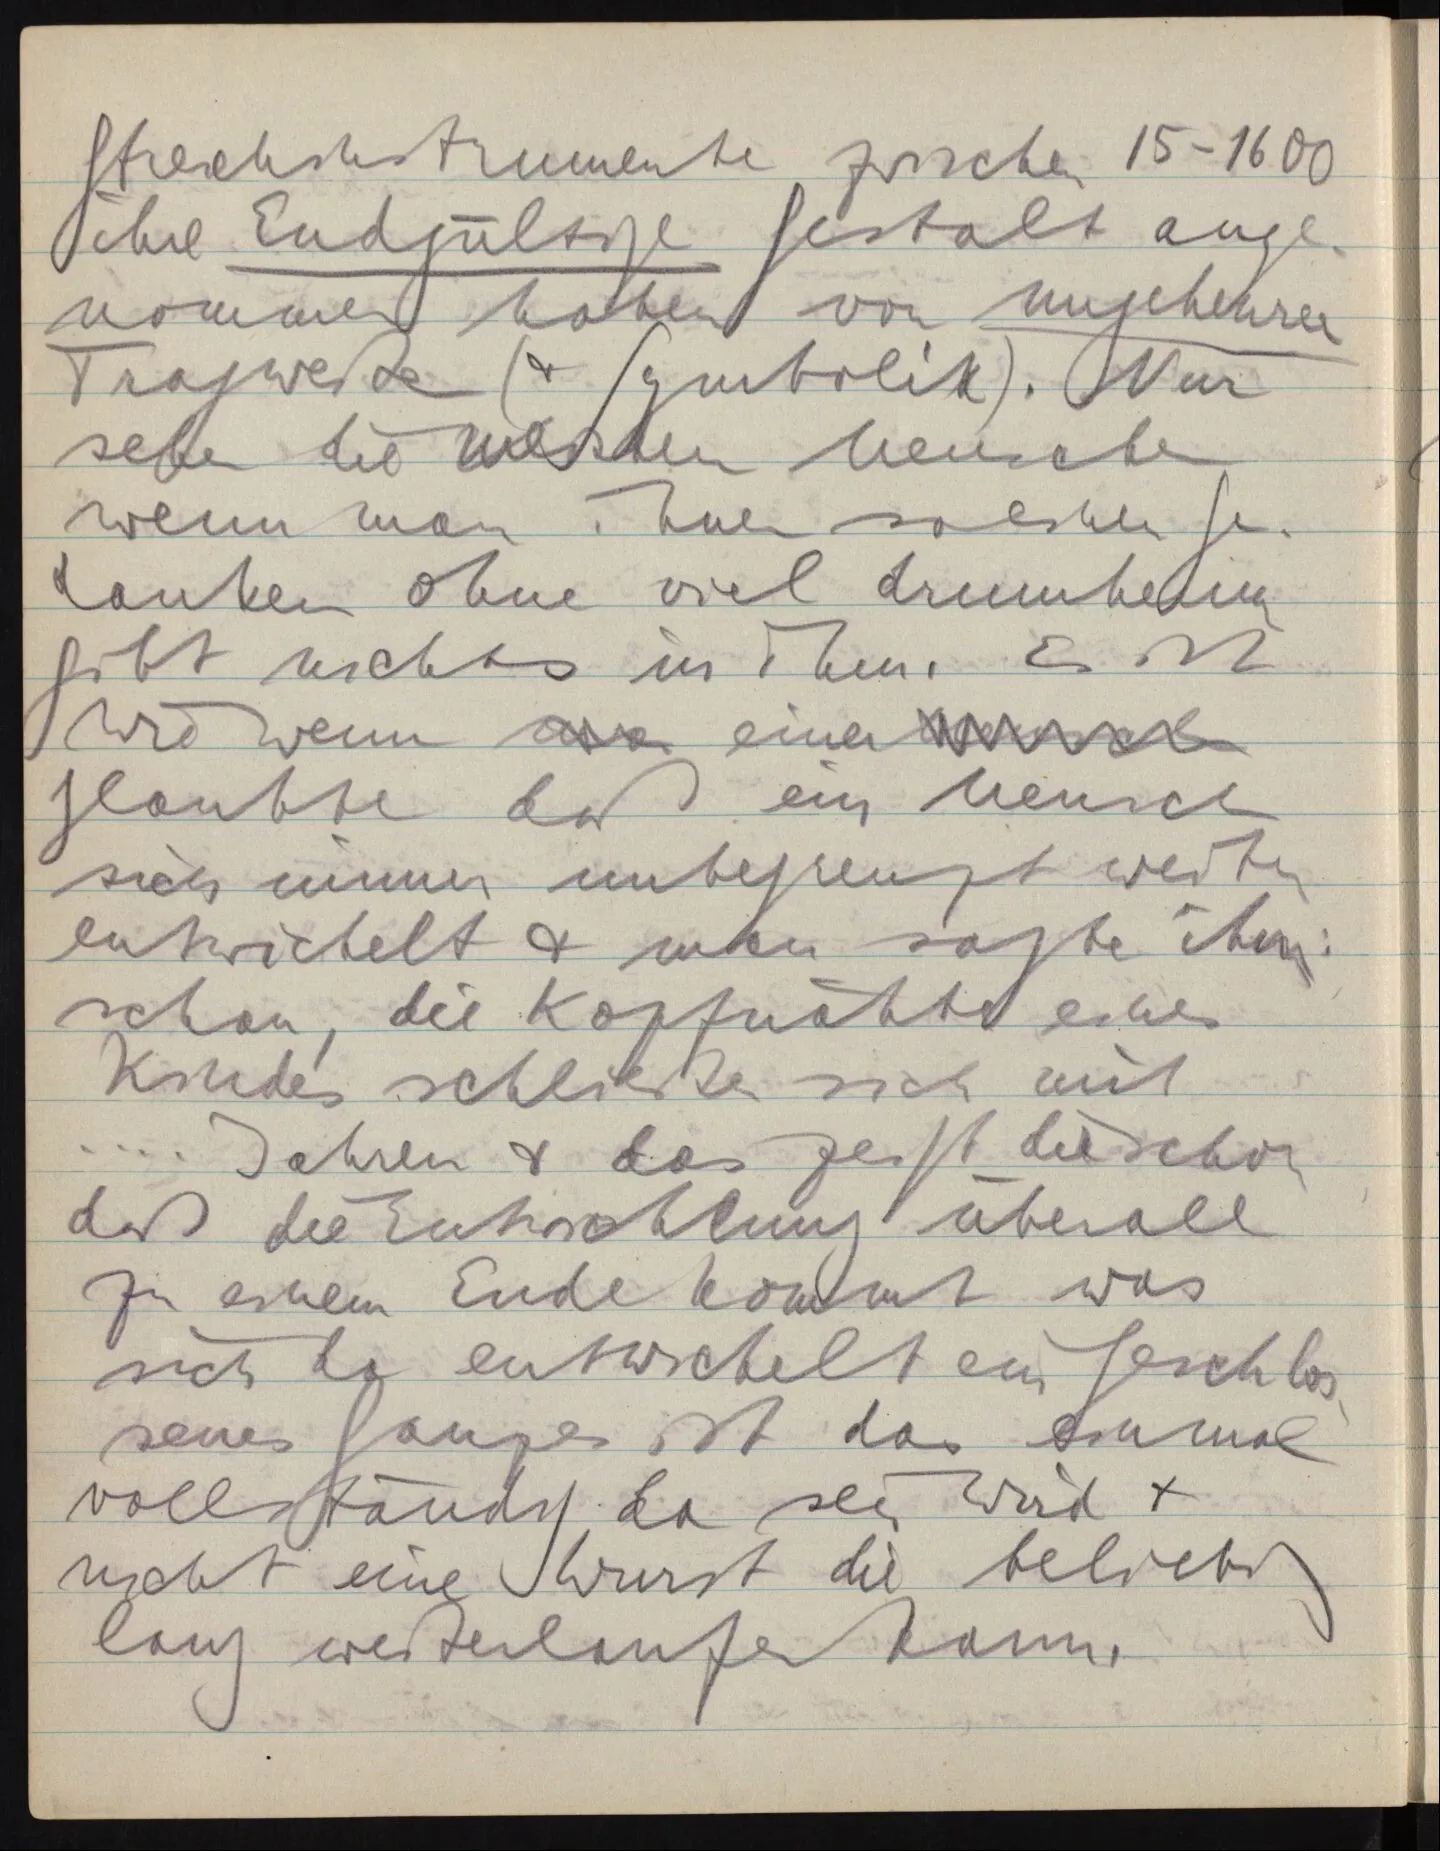 Streichinstrumente zwischen 15–1600
ihre Endgültige Gestalt ange-
nommen haben von ungeheurer
Tragweite (& Symbolik). Nur
sehen die meisten Menschen
wenn man ihnen solchen Ge-
danken ohne viel drumherum
gibt nichts in ihm. Es ist
wie wenn einer
glaubte daß ein Mensch
sich immer unbegrenzt weiter
entwickelt & man sagte ihm:
schau, die Kopfnähte eines
Kindes schließen sich mit
.... Jahren & das zeigt dir schon
daß die Entwicklung überall
zu einem Ende kommt was
sich da entwickelt ein geschlos-
senes Ganzes ist das einmal
vollständig da sein wird &
nicht eine Wurst die beliebig
lang weiterlaufen kann.